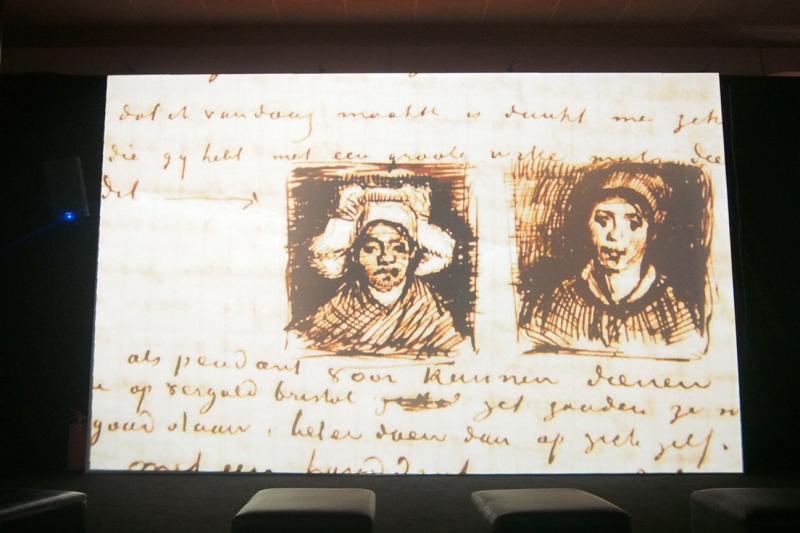 dat ik vandaag maakte is dunkt me
die gy hebt met een groote witte muts die
dit
als pendant voor kunnen dienen
op verguld bristol zet gouden ze
goud staan. heter doen dan op zich zelf.
met een